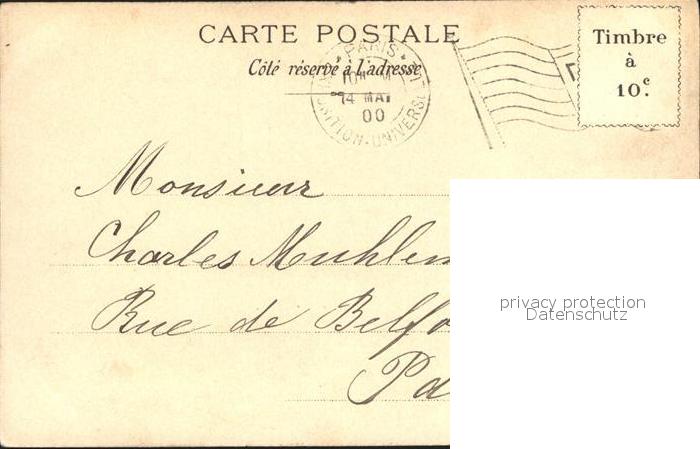 CARTE POSTALE
Côté réservé à l'adresse
Timbre
à
10c.
PARIS
14 MAI
00
Monsieur
Charles Muhlem
Rue de Belfo
Pa
privacy protection
Datenschutz